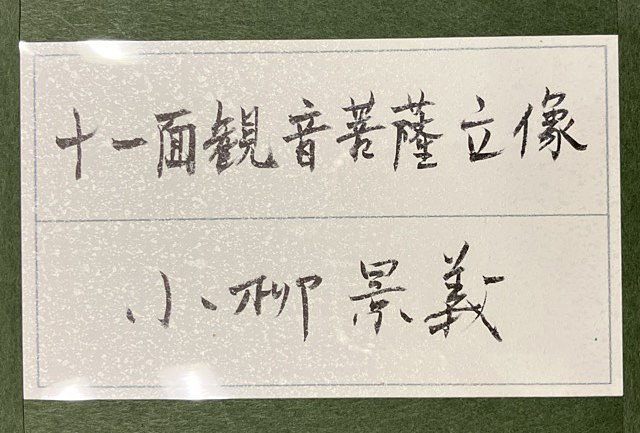 十一面観音菩薩立像
小柳景義